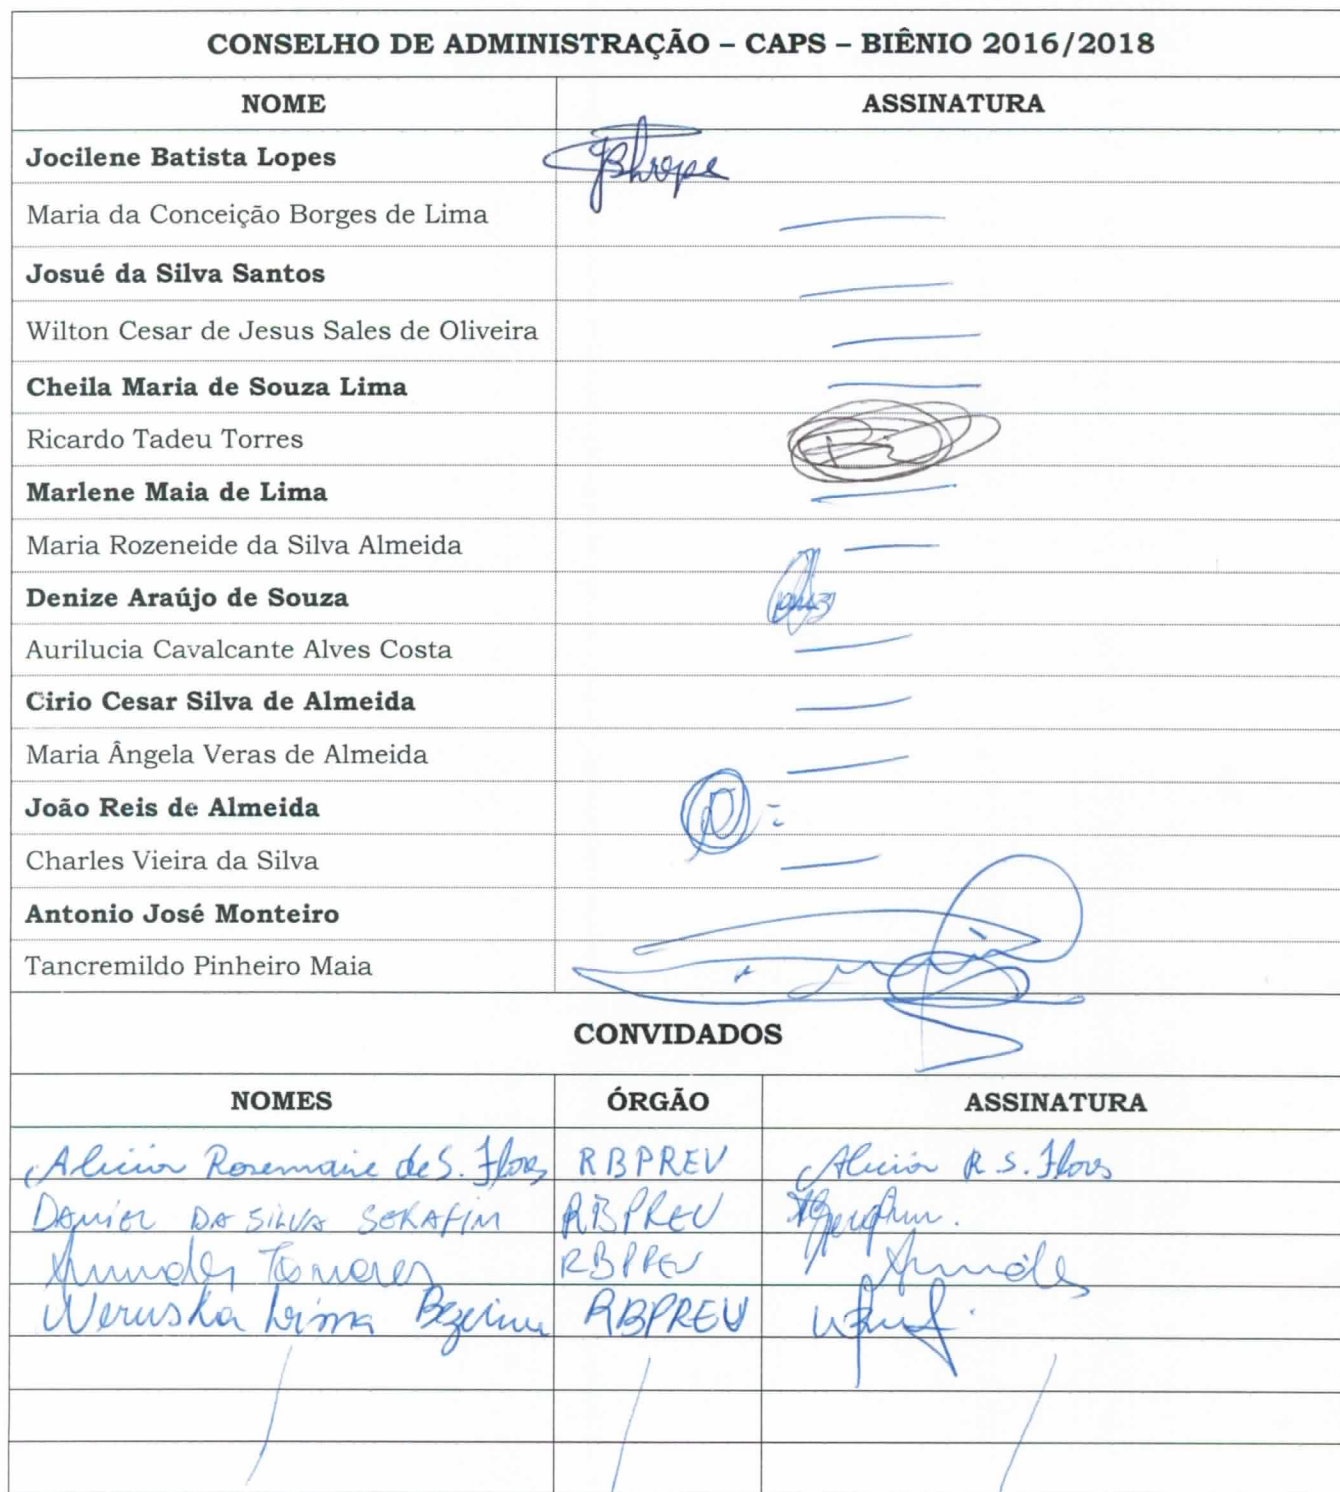 CONSELHO DE ADMINISTRAÇÃO – CAPS – BIÊNIO 2016/2018
NOME ASSINATURA
Jocilene Batista Lopes
Maria da Conceição Borges de Lima
Josué da Silva Santos
Wilton Cesar de Jesus Sales de Oliveira
Cheila Maria de Souza Lima
Ricardo Tadeu Torres
Marlene Maia de Lima
Maria Rozeneide da Silva Almeida
Denize Araújo de Souza
Aurilucia Cavalcante Alves Costa
Cirio Cesar Silva de Almeida
Maria Ângela Veras de Almeida
João Reis de Almeida
Charles Vieira da Silva
Antonio José Monteiro
Tancremildo Pinheiro Maia
CONVIDADOS
NOMES ÓRGÃO ASSINATURA
Rosemaire de S. Flores RBPREV R. S. Flores
DANIEL DA SILVA SERAFIM RBPREV
RBPREV
Weruska Lima Bezerra RBPREV